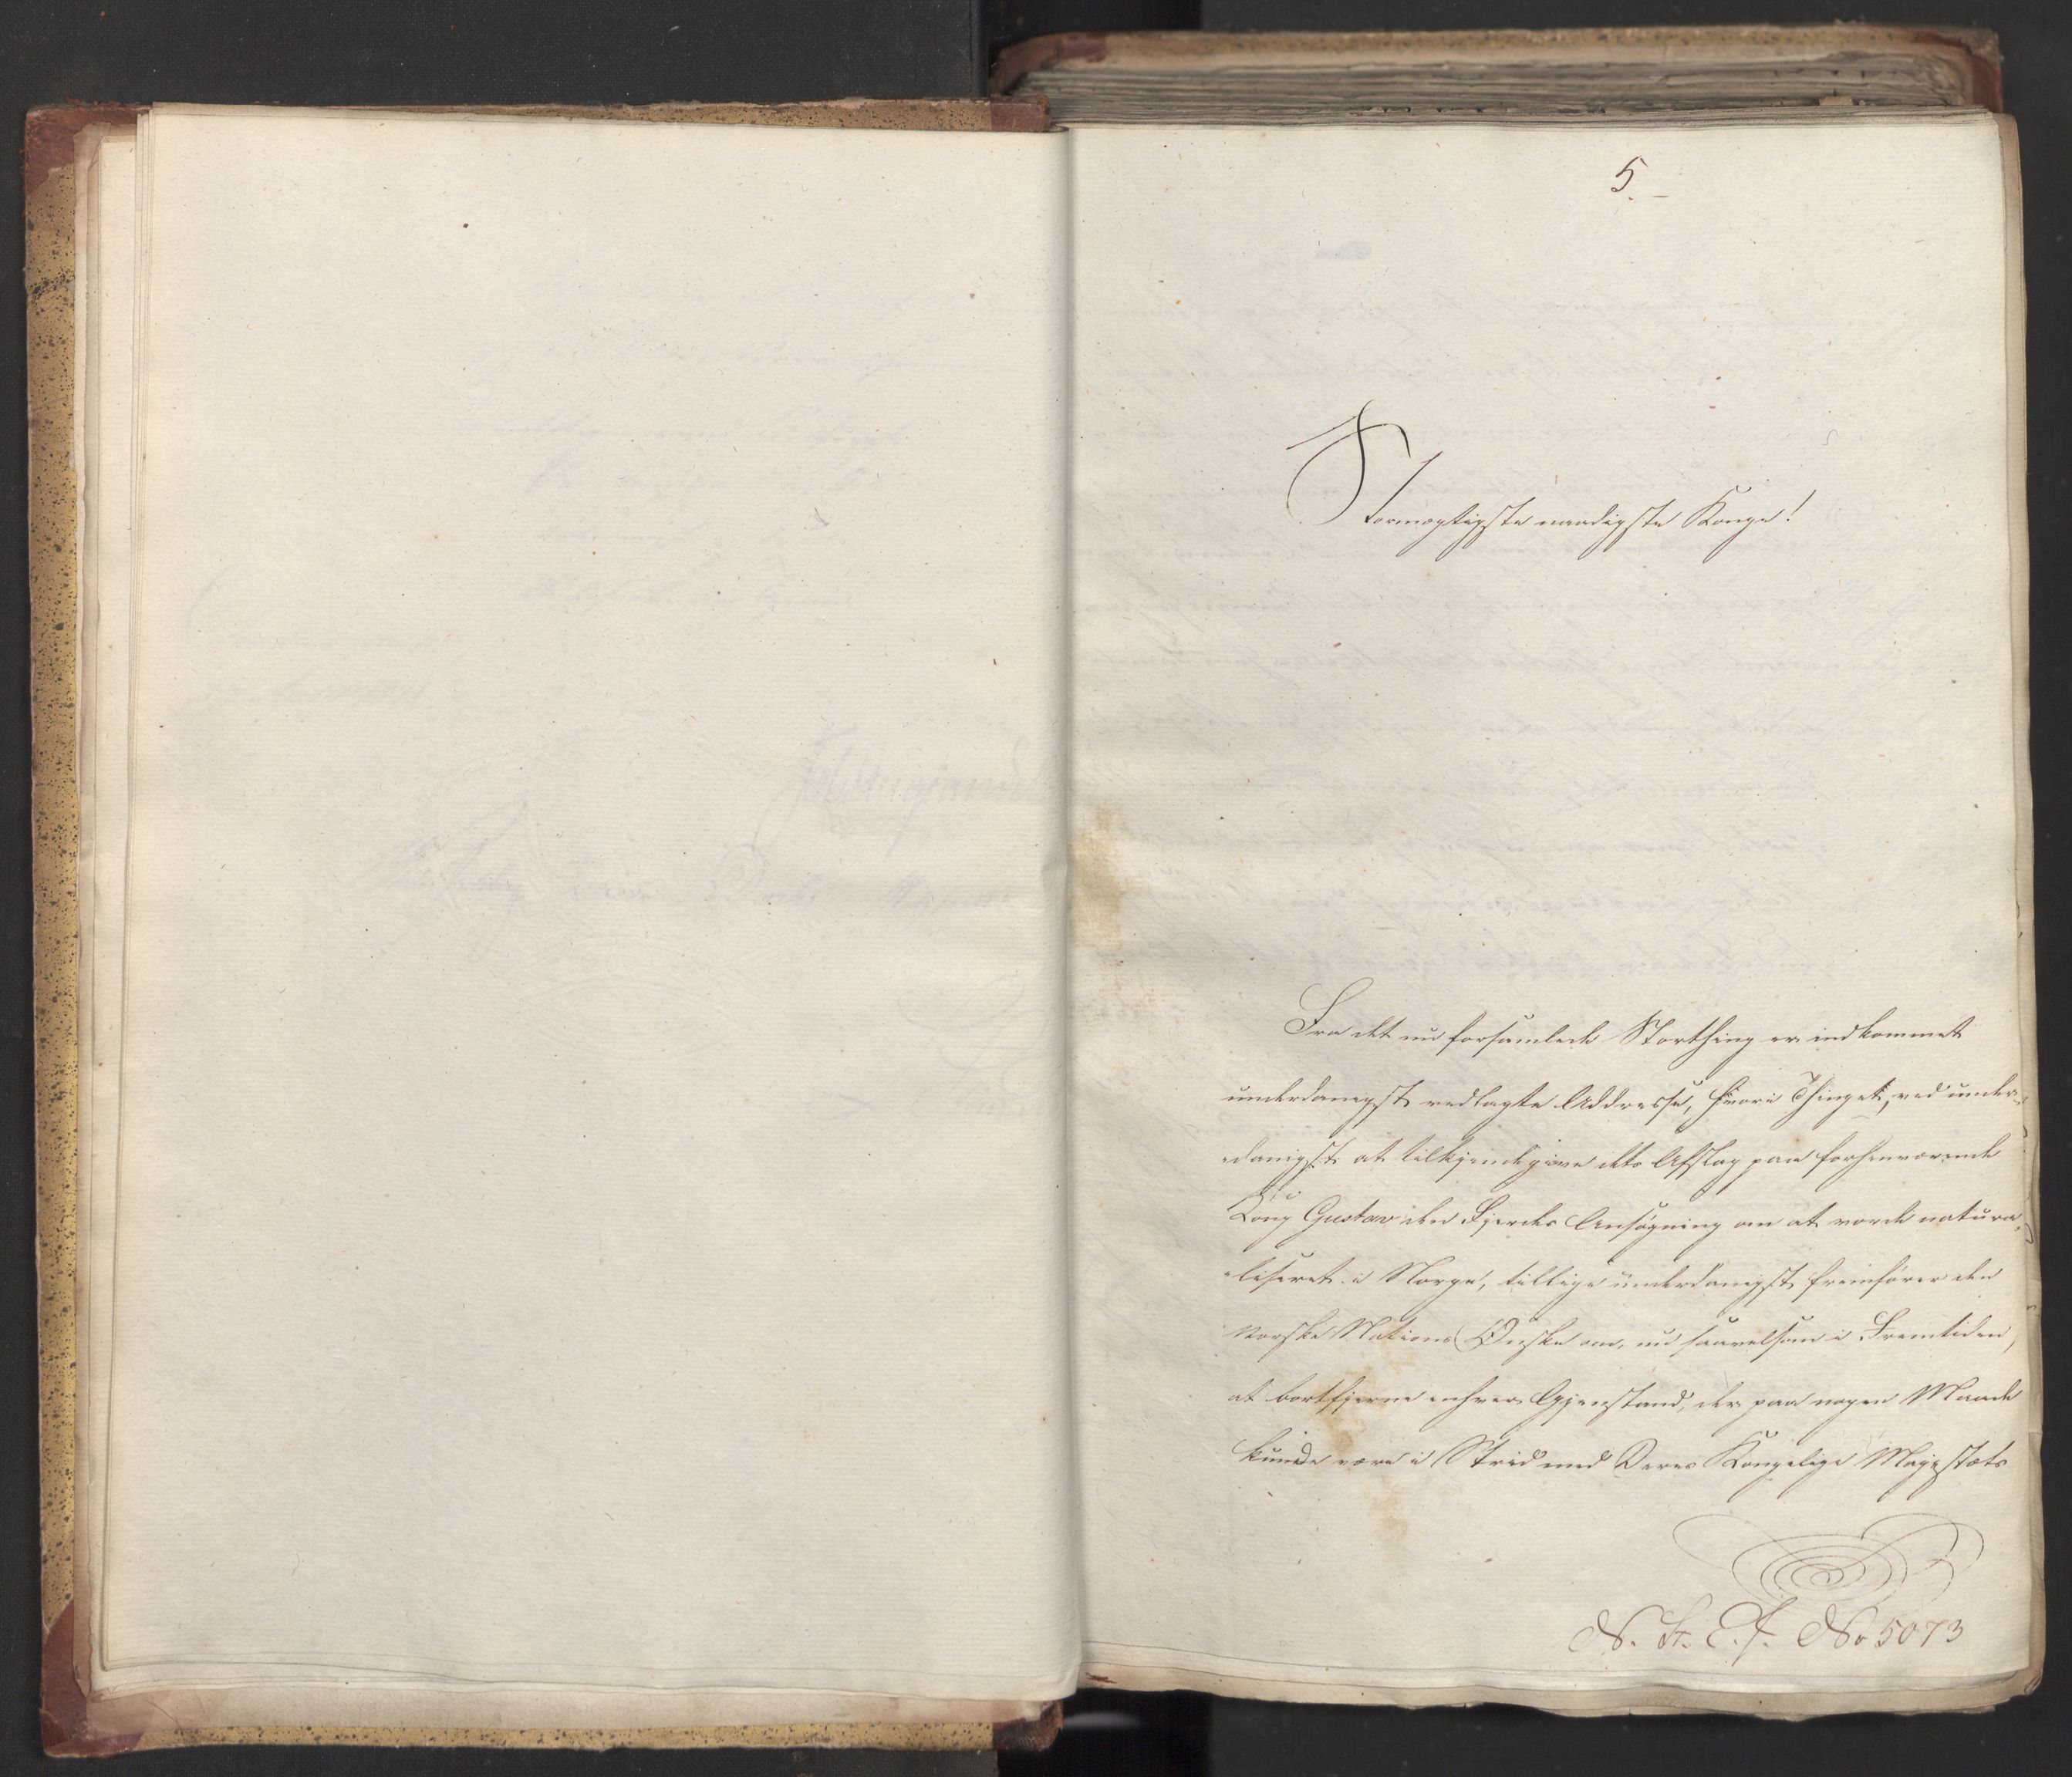 5.
Stormægtigste naadigste Konge!
Fra det nu forsamlede Storthing er indkommet
underdanigst vedlagte Addresse, hvori Thinget, ved under-
danigst at tilkjendegive dets Afslag paa forhenværende
Kong Gustav den Fjerdes Ansøgning om at vorde natura-
liseret i Norge, tillige underdanigst fremfører den
norske Nations Ønske om, nu saavelsom i Fremtiden,
at bortfjerne enhver Gjenstand, der paa nogen Maade
kunde være i Strid med Deres Kongelige Majestæts
N. St. E. f. No 5073